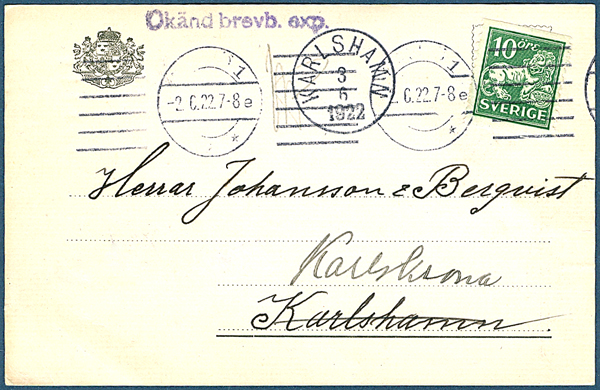 Okänd brevb. exp.
1
-2.6.22.7-8 e
*
KARLSHAMN
3
6
1922
1
2.6.22.7-8 e
*
10 ÖRE
SVERIGE
Herrar Johansson & Bergqvist
Karlskrona
Karlshamn.